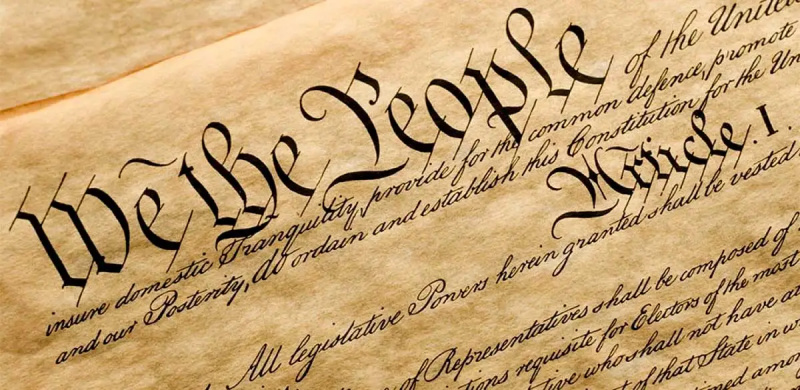 We the People of the United
insure domestic Tranquility, provide for the common defence, promote
and our Posterity, do ordain and establish this Constitution for the Un
Article. I.
All legislative Powers herein granted shall be vested
of Representatives shall be composed of
tions requisite for Electors of the most
tive who shall not have at
of that State in w